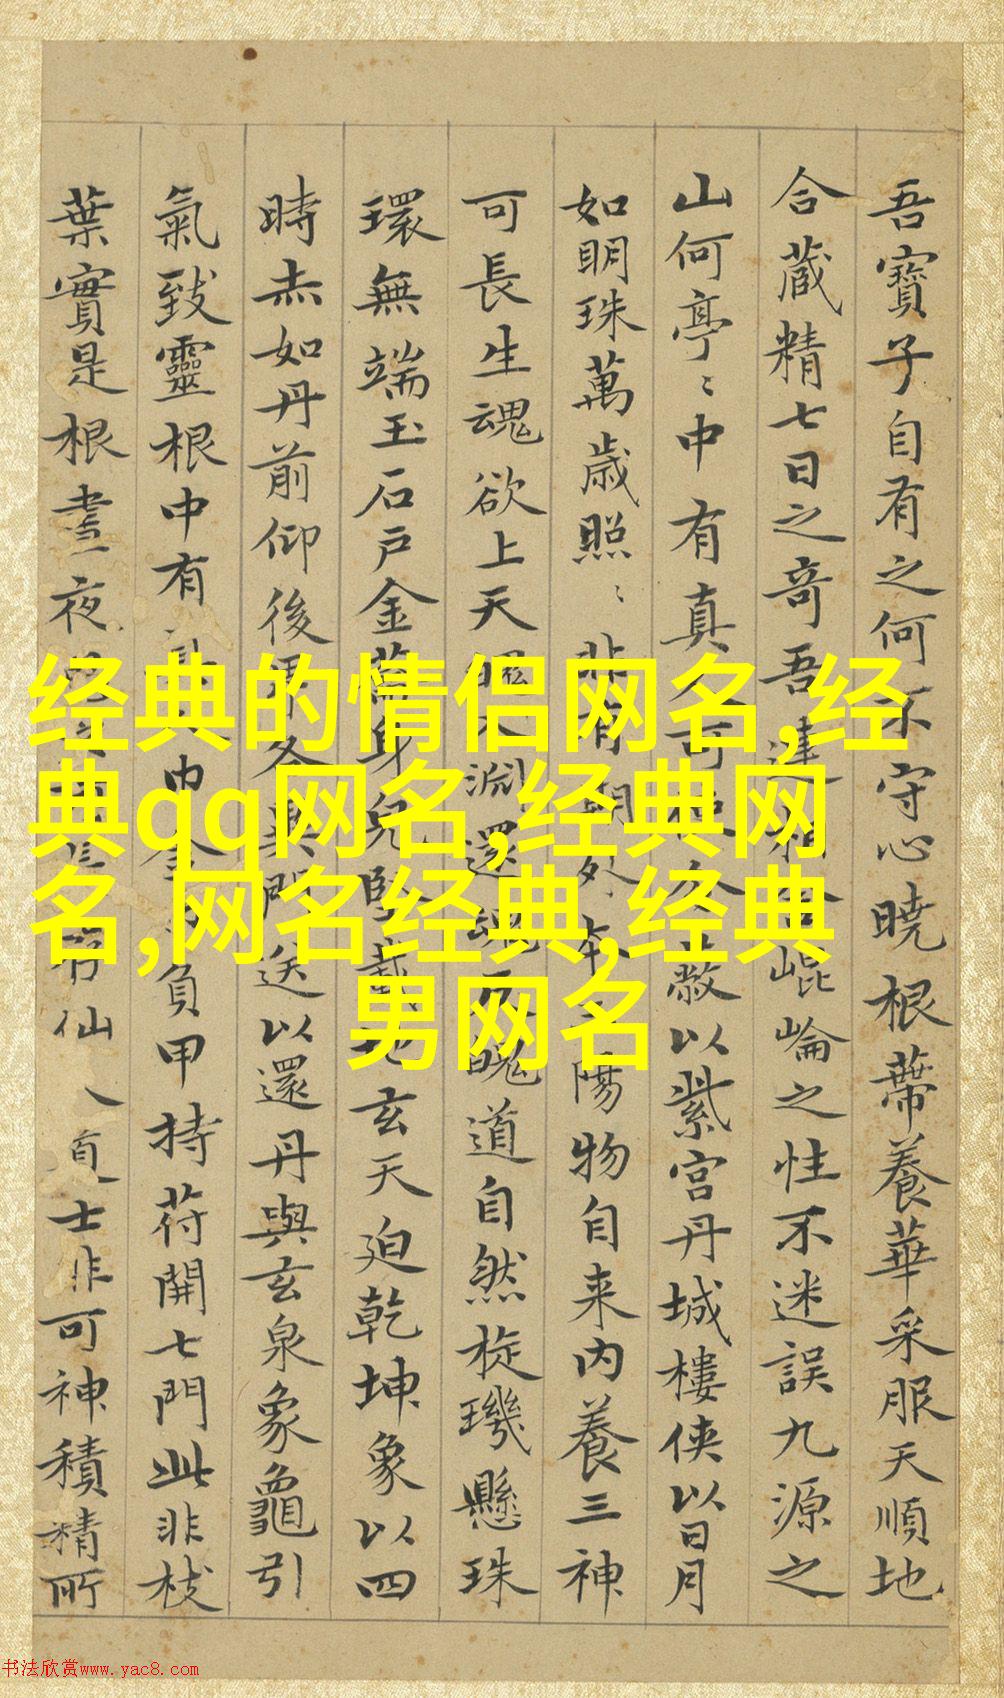 吾寶子自有之何不守心曉根蒂養華采服天順地
合藏精七日之奇吾連崐崘之性不迷誤九源之
山何亭〻中有真可敝以紫宮丹城樓俠以日月
如明珠萬歲照〻非有期外本陽物自来内養三神
可長生魂欲上天入淵還魂反魄道自然旋璣懸珠
環無端玉石戶金籥身兒堅載地玄天迫乾坤象以四
時赤如丹前仰後卑各異門送以還丹與玄泉象龜引
氣致靈根中有巾金負甲持苻開七門此非枝
葉實是根晝夜仙士非可神積精所
经典的情侣网名,经
典qq网名,经典网
名,网名经典,经典
男网名
书法欣赏www.yac8.com